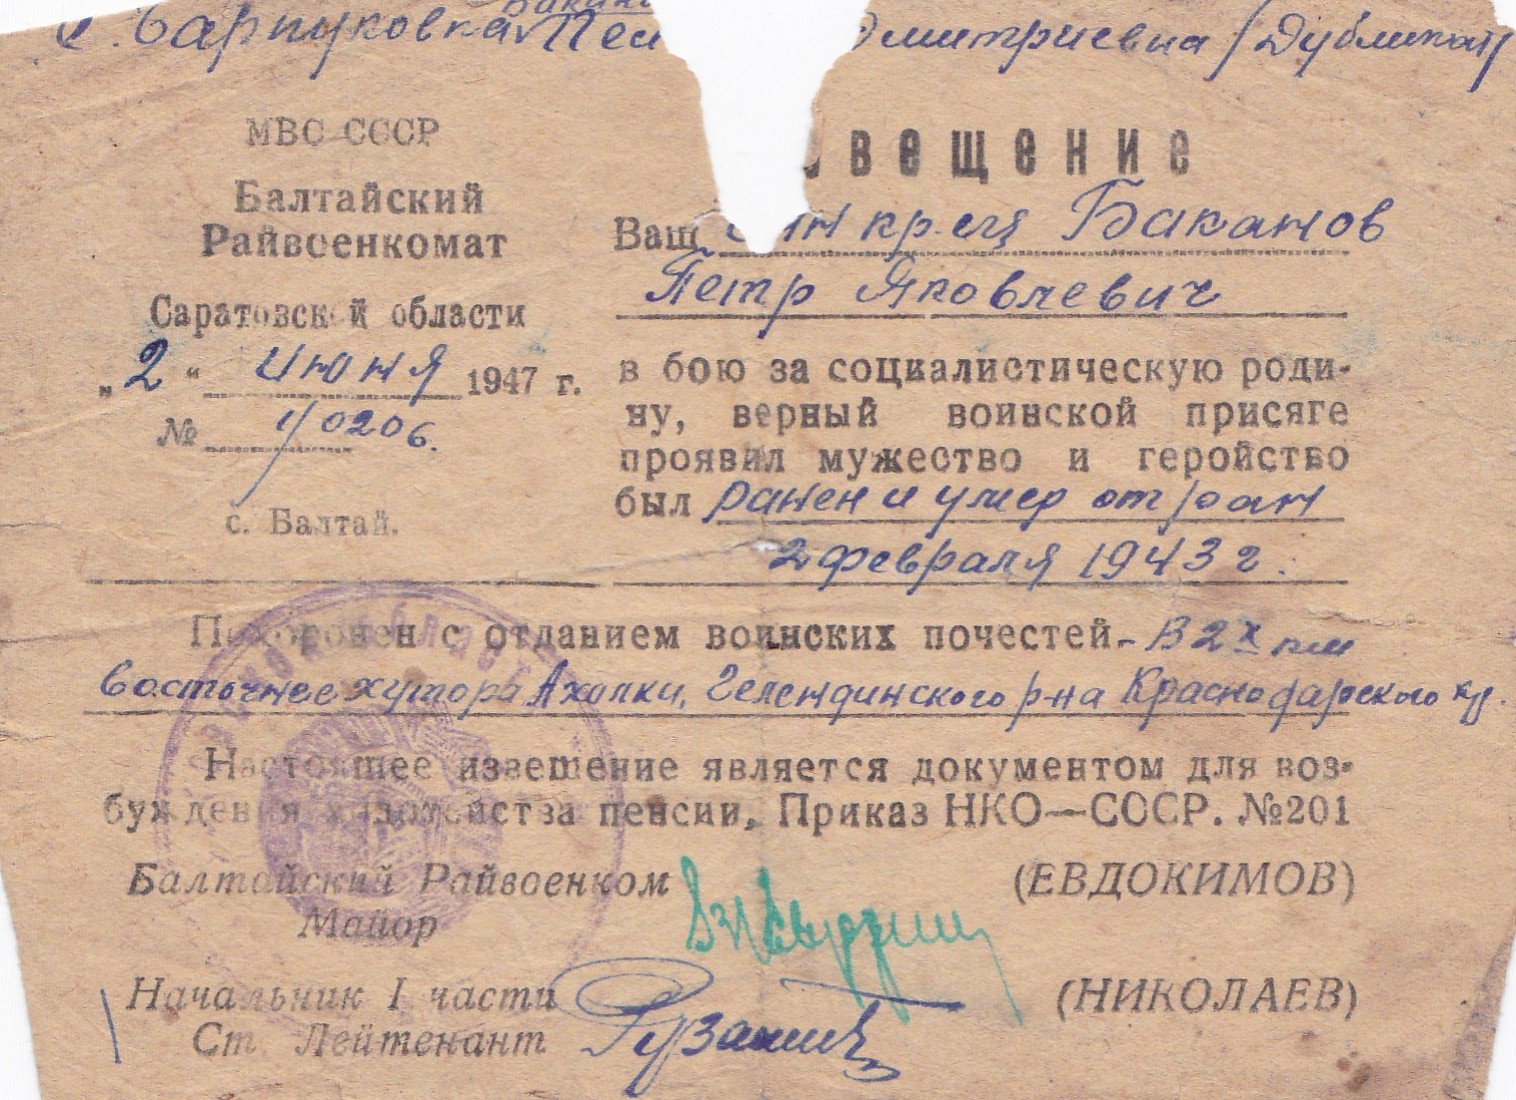 с. Барнуковка Дмитриевна (Дубликат)
МВС СССР
Балтайский
Райвоенкомат
Саратовской области
„2“ июня 1947 г.
№ 1/0206.
с. Балтай.
вещение
Ваш сын кр-ец Баканов
Петр Яковлевич
в бою за социалистическую роди-
ну, верный воинской присяге
проявил мужество и геройство
был ранен и умер от ран
2 февраля 1943 г.
Похоронен с отданием воинских почестей - В 2х км
восточнее хутора Ахолки, Гелендинского р-на Краснодарского кр.
Настоящее извещение является документом для воз-
буждения ходатайства пенсии, Приказ НКО—СССР. №201
Балтайский Райвоенком (ЕВДОКИМОВ)
Майор
Начальник I части (НИКОЛАЕВ)
Ст. Лейтенант